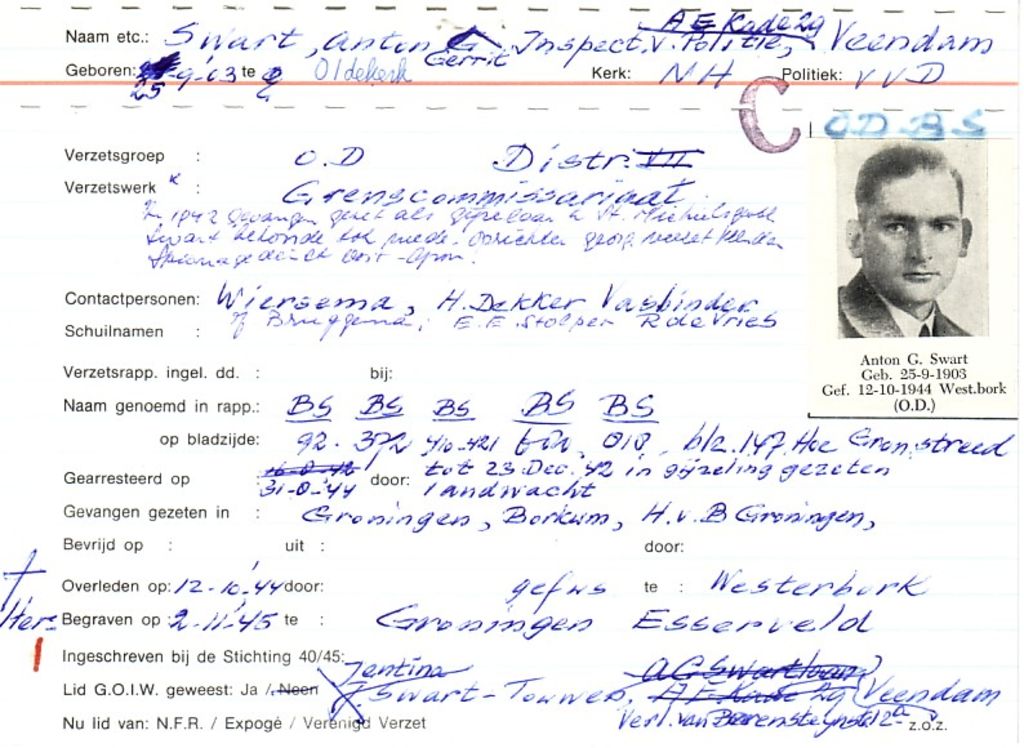 A E Kade 29
Naam etc.: Swart, Anton G Gerrit Inspect. v. Politie, Veendam
Geboren: 25 9.'03 te Oldekerk Kerk: NH Politiek: VVD
C
O D B S
Verzetsgroep : O.D Distr. VII
Verzetswerk : Grenscommissariaat
In 1942 gevangen gezet als gijzelaar te St. Michielsgestel
Swart behoorde tot mede-oprichter georg. verzet
Spionagedienst Oost-Gron.
Contactpersonen: Wiersema, H. Dekker Vasbinder
Bruggema, E.E. Stolper R de Vries
Schuilnamen :
Verzetsrapp. ingel. dd. : bij:
Naam genoemd in rapp.: BS BS BS BS BS
op bladzijde: 92. 372 410-421 010, blz. 147 Hoe Gron. streed
Gearresteerd op : 31-8-'44 door: tot 23 Dec. '42 in gijzeling gezeten
landwacht
Gevangen gezeten in : Groningen, Borkum, H.v.B Groningen,
Bevrijd op : uit : door:
Overleden op: 12-10-'44 door: te : Westerbork
Her- Begraven op 2-11-'45 te : Groningen Esserveld
Ingeschreven bij de Stichting 40/45:
Jentina
Lid G.O.I.W. geweest: Ja / Neen Swart-Touwen, A E Kade 29 Veendam
Nu lid van: N.F.R. / Expogé / Verenigd Verzet Verl. van Berensteynstr. 12a z.o.z.
Anton G. Swart
Geb. 25-9-1903
Gef. 12-10-1944 West.bork
(O.D.)